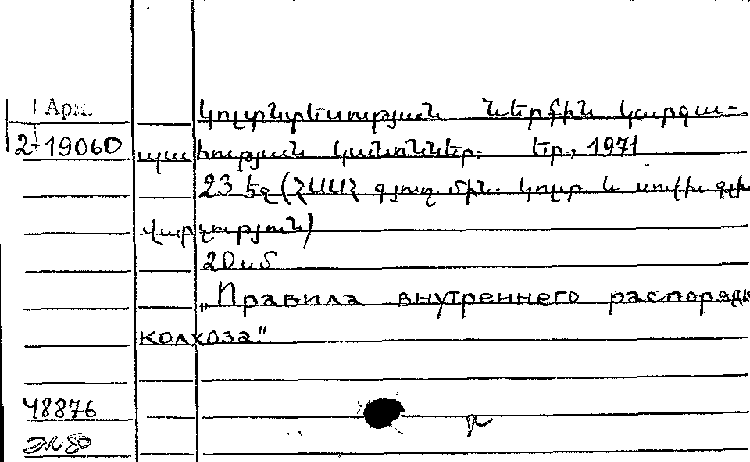 Арм.
2-19060
Կոլտնտեսության ներքին կարգա-
պահության կանոններ. Եր., 1971
23 էջ (ՀՍՍՀ գյուղ. մին. կոլտ. և սովխ. գլխ
վարչություն)
20 սմ
„Правила внутреннего распорядк
колхоза"
48876